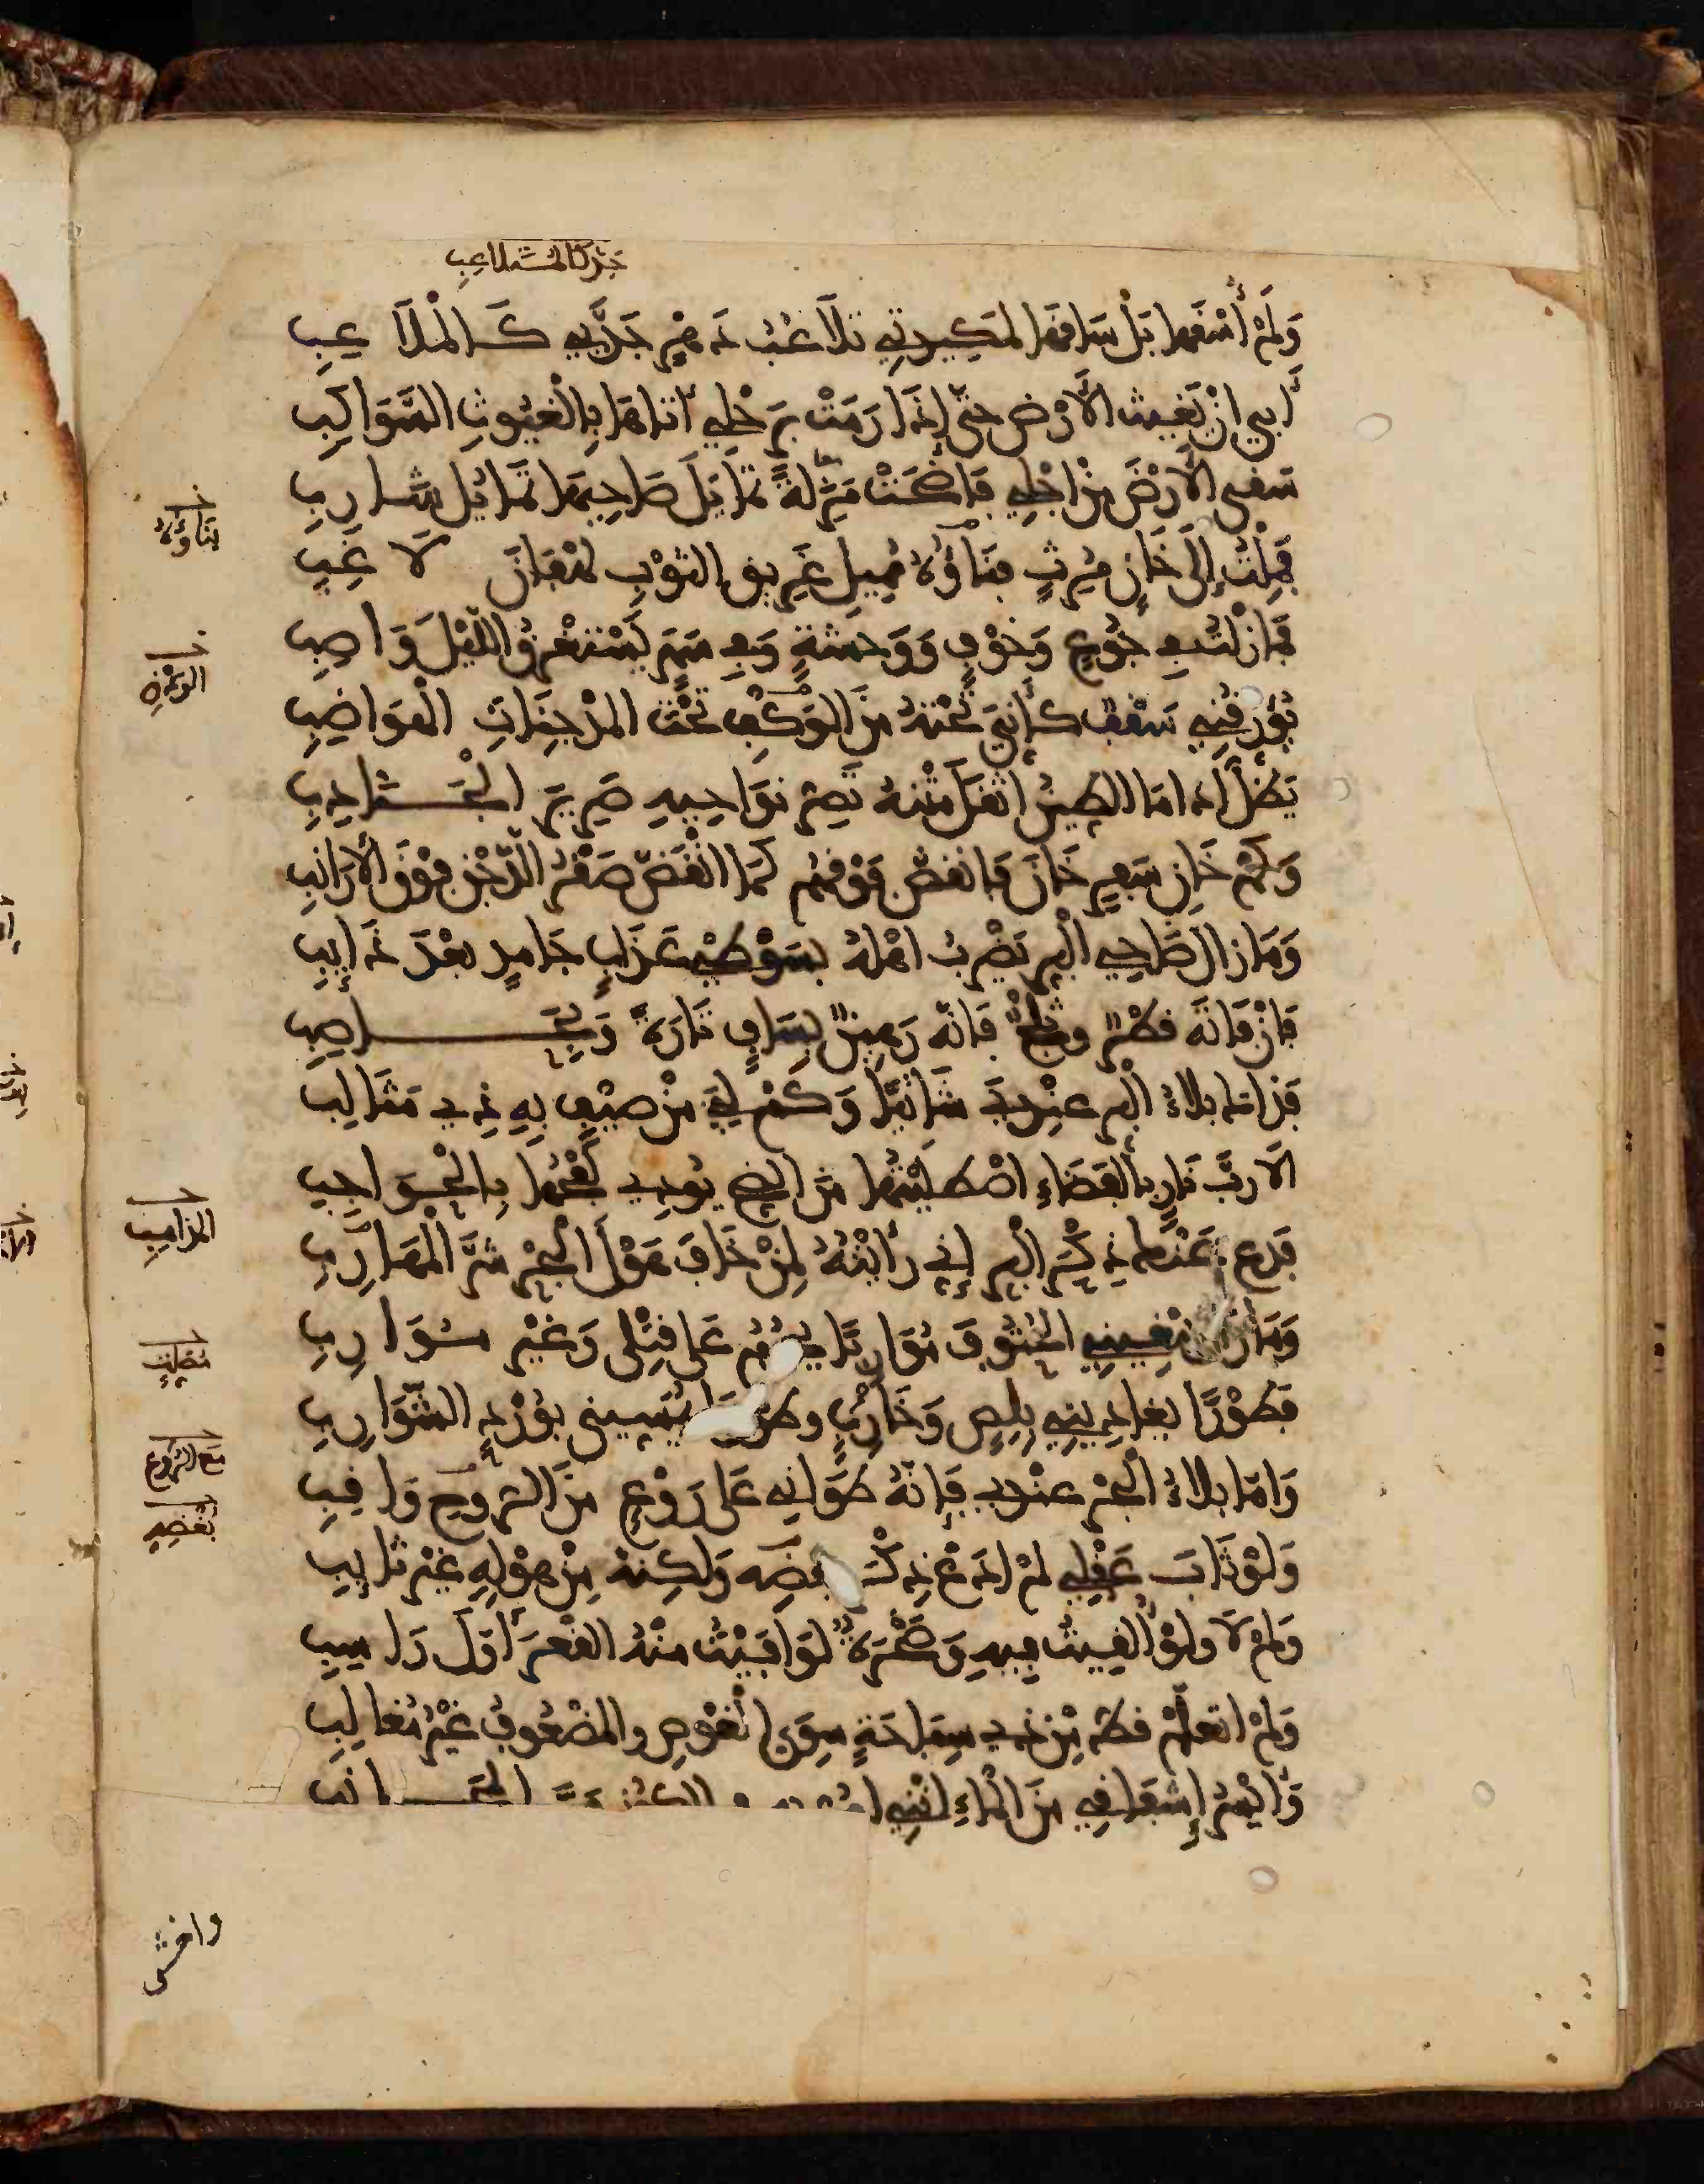 جد كالمتلاعب
وَلَمْ أُسْقَهَا بَلْ سَاقَهَا لمَكِيدَتِي تَلاَعُبُ دَهْرٍ جَدَّ بِي كَالْمُلاَعِبِ
أَبَى انْ يُغِيثَ الأَرْضَ حتَّى إِذَا رَمَتْ بِرَحْلِي أَتَاهَا بِالْغُيُوثِ السَّوَاكِبِ
سَقَى الأَرْضَ مِنْ اجْلِي فَاضْحَتْ مَزِلَّةً تَمَايَلَ صَاحِيهَا تَمَايُلَ شَارِبِ
فَمِلْتُ إِلَى خَانٍ مُرِثٍ بِنَاؤُهُ مَمِيلَ غَرِيقِ الثَّوْبِ لَهْفَانَ لاَغِبِ
فَمَا زِلْتُ فِي جُوعٍ وَخَوْفٍ وَوَحْشَةٍ وَفِي سَهَرٍ يَسْتَغْرِقُ اللَّيْلَ وَاصِبِ
يُؤَرِّقُنِي سَقْفٌ كَأَنِّيَ تَحْتَهُ مِنَ الوَكْفِ تَحْتَ المُدْجِنَاتِ الهَوَاضِبِ
يَظَلُّ إِذَا مَا الطِّينُ اثْقَلَ مَتْنَهُ تَصِرُّ نَوَاحِيهِ صَرِيرَ الْجَنَادِبِ
وَكَمْ خَانِ سَفْرٍ خَانَ فَانْقَضَّ فَوْقَهُم كَمَا انْقَضَّ صَقْرُ الدَّجْنِ فَوْقَ الأَرَانِبِ
وَمَا زَالَ ضَاحِي الْبَرِّ يَضْرِبُ اهْلَهُ بِسَوْطَيْ عَذَابٍ جَامِدٍ بَعْدَ ذَائِبِ
فَإِنْ فَاتَهُ قَطْرٌ وثَلْجٌ فَإِنَّهُ رَهِينٌ بِسَافٍ تَارَةً وَبِحَاصِبِ
فَذَاكَ بَلاَءُ الْبَرِّ عِنْدِيَ شَاتِيًا وَكَمْ لِيَ مِنْ صَيْفٍ بِهِ ذِي مَثَالِبِ
أَلاَ رُبَّ نَارٍ بِالْفَضَاءِ اصْطَلَيْتُهَا مِنَ الضِّحِّ يُودِي لَفْحُهَا بِالْحَوَاجِبِ
فَدَعْ عَنْكَ ذِكْرَ الْبَرِّ إِنِّي رَأَيْتُهُ لِمَنْ خَافَ هَوْلَ الْبَحْرِ شَرَّ الْمَهَارِبِ
وَمَا زَالَ يَبْغِينِي الحُتُوفَ مُوَارِبًا يَحُومُ عَلَى قَتْلِي وَغَيْرَ مُوَارِبِ
فَطَوْرًا يُغَادِينِي بِلِصٍّ وَخَارِبٍ وطَوْرًا يُمَسِّينِي بِوُرْدِ الشَّوَارِبِ
وَامَّا بَلاَءُ الْبَحْرِ عِنْدِي فَإِنَّهُ طَوَانِي عَلَى رَوْعٍ مِنَ الرُّوحِ وَاقِبِ
وَلَوْ ثَابَ عَقْلِي لَمْ ادَعْ ذِكْرَ بَعْضِهِ وَلَكِنَّهُ مِنْ هَوْلِهِ غَيْرُ ثَائِبِ
وَلِمْ لاَ وَلَوْ أُلْقِيتُ فِيهِ وَصَخْرَةٌ لَوَافَيْتُ مِنْهُ القَعْرَ أَوَّلَ رَاسِبِ
وَلَمْ اتَعَلَّمْ قَطُّ مِنْ ذِي سِبَاحَةٍ سِوَى الْغَوْصِ والمَضْعُوفُ غَيْرُ مُغَالِبِ
وَأَيْسَرُ إِشْفَاقِي مِنَ الْمَاءِ انَّنِي
بِنَاؤُهُ
الوَدْقِ
المذاهب
مُصْلِتٍ
مَعَ الرُّوعِ
بَعْضِهِ
واخشى